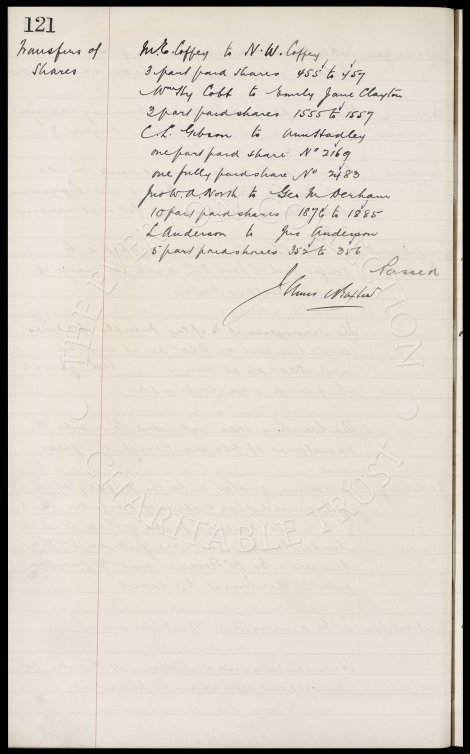 121
Transfers of
Shares
M. E. Coffey to N. W. Coffey
3 part paid shares 455 to 457
Wm Hy Cobb to Emily Jane Claxton
3 part paid shares 1555 to 1557
C. L. Gibson to Ann Hadley
one part paid share No 2169
one fully paid share No 2483
Jno W. A. North to Geo M Derham
10 part paid shares 1876 to 1885
L Anderson to Jas Anderson
5 part paid shares 352 to 356
Passed
James Baxter
THE EVERTON COLLECTION
CHARITABLE TRUST